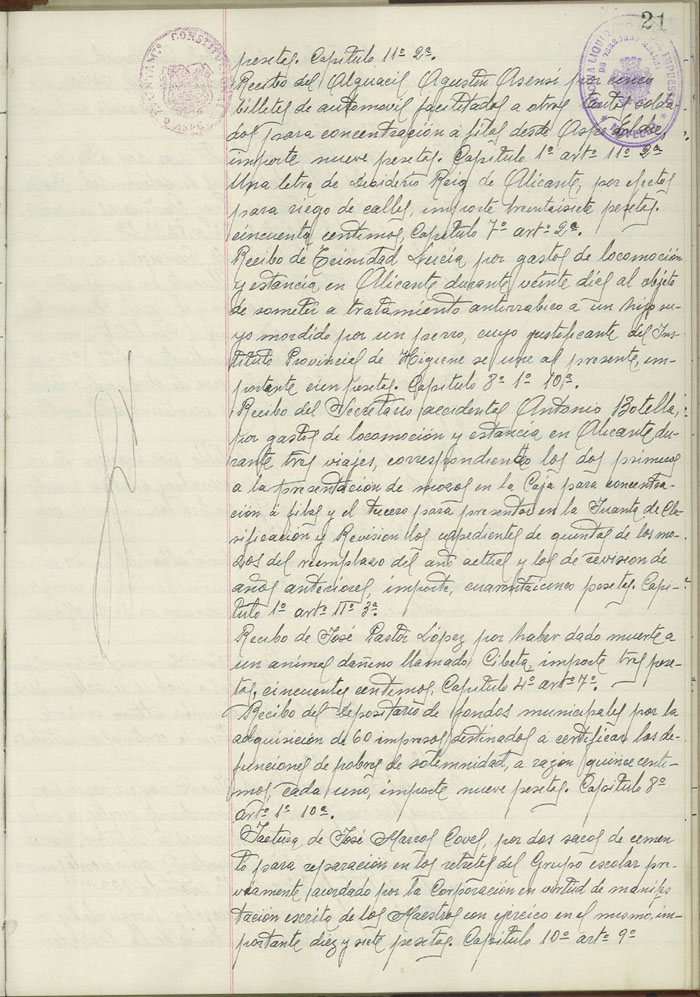 21
pesetas. Capítulo 11º 2º.
Recibo del Alguacil, Agustín Asensi por cinco
billetes de automovil facilitados a otros tantos solda-
dos para concentración a filas desde Aspe
importe nueve pesetas. Capítulo 1º artº 11º 2º
Una letra de Desiderio Reig de Alicante, por efectos
para riego de calles, importe treintaisiete pesetas.
cincuenta centimos, Capítulo 7º artº 2º.
Recibo de Trinidad Lucía, por gastos de locomoción
y estancia en Alicante durante veinte días al objeto
de someter a tratamiento antirrabico a un hijo su-
yo mordido por un perro, cuyo justificante del Ins-
tituto Provincial de Higiene se une al presente, im-
portante cien pesetas. Capítulo 8º 1º 10º.
Recibo del Secretario accidental Antonio Botella,
por gastos de locomoción y estancia en Alicante du-
rante tres viajes, correspondiendo los dos primeros
a la presentación de mozos en la Caja para concentra-
ción á filas y el tercero para presentar en la Junta de Cla-
sificación y Revision los expedientes de quintas de los mo-
zos del reemplazo del año actual y los de revision de
años anteriores, importe, cuarentaicinco pesetas. Capi-
tulo 1º artº 11º 3º.
Recibo de José Pastor López por haber dado muerte a
un animal dañino llamado Cibeta, importe tres pese-
tas, cincuenta centimos, Capítulo 4º artº 7º.
Recibo del Depositario de fondos municipales por la
adquisición de 60 impresos destinados a certificar las de-
funciones de pobres de solemnidad, a razon quince centi-
mos cada uno, importe nueve pesetas. Capítulo 8º
artº 1º 10º.
Factura, de José Marcos Coves, por dos sacos de cemen-
to para reparación en los retretes del Grupo escolar pre-
viamente acordado por la Corporación en virtud de manifes-
tación escrita de los Maestros con ejercicio en el mismo, im-
portante diez y siete pesetas. Capítulo 10º artº 9º